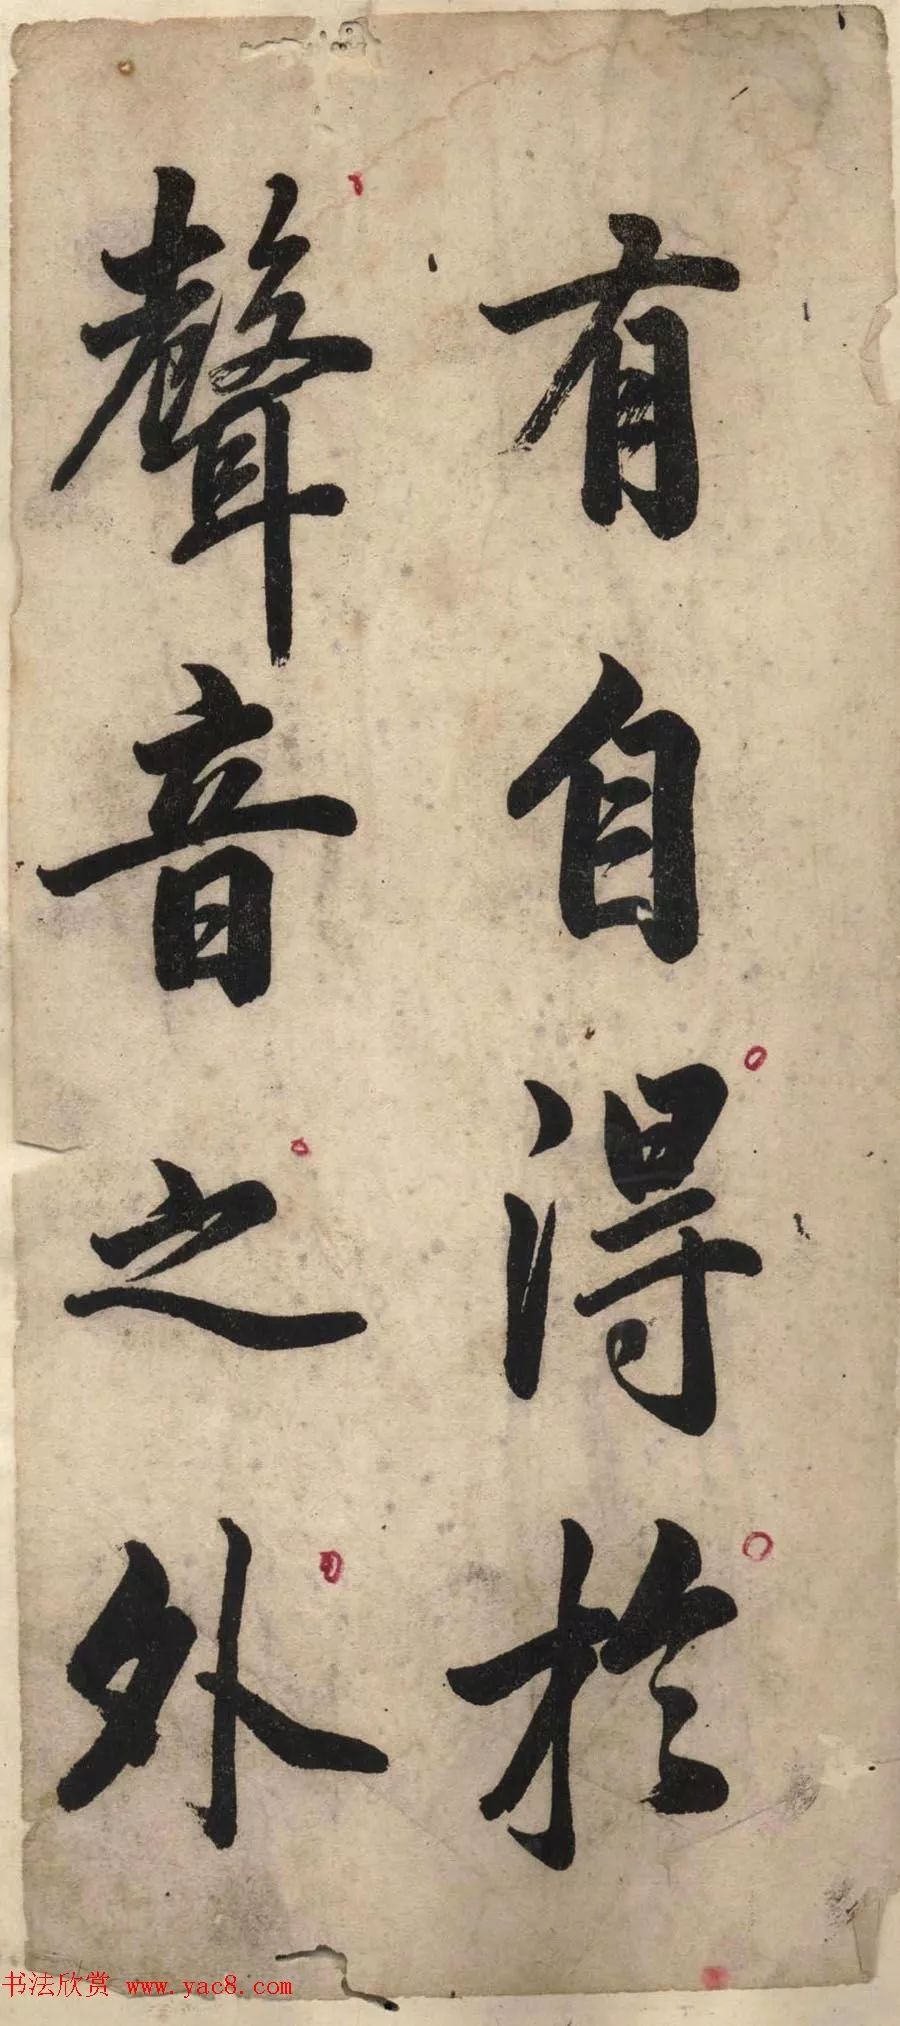 有自得於
聲音之外
书法欣赏 www.yac8.com